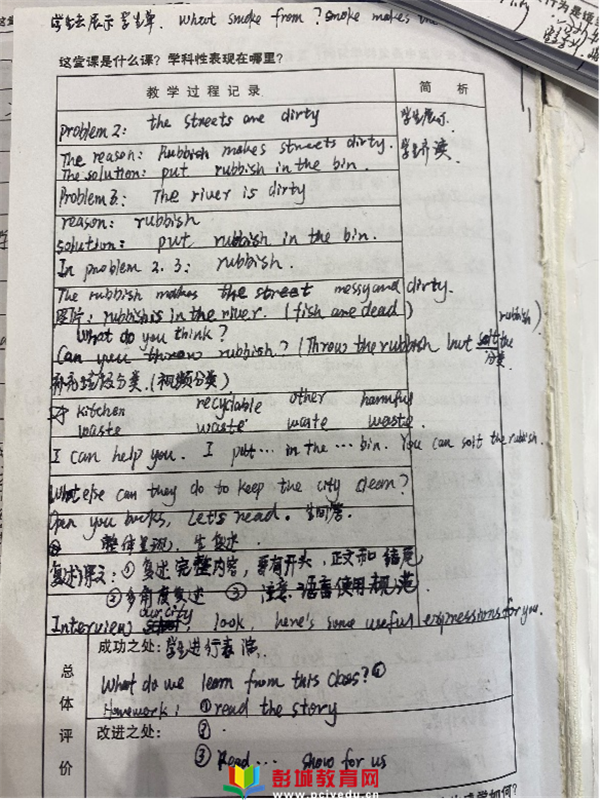 学生去展示学生单. What smoke from ? smoke makes the
这堂课是什么课？学科性表现在哪里？
教学过程记录 简析
Problem 2: the streets are dirty 学生展示.
The reason: Rubbish makes streets dirty. 学生齐读.
The solution: put rubbish in the bin.
Problem 3: The river is dirty
reason: rubbish
solution: put rubbish in the bin.
In problem 2. 3: rubbish.
The rubbish makes the street messy and dirty.
图片: rubbish is in the river. (fish are dead)
What do you think?
Can you throw rubbish? (Throw the rubbish but sort the rubbish)
分类
补充垃圾分类.(视频分类)
kitchen recyclable other harmful
waste waste waste waste
I can help you. I put... in the... bin. You can soit the rubbish.
What else can they do to keep the city clean?
Open you books, Let's read. 生回答.
整体呈现, 生复述
复述课文: ① 复述完整内容, 要有开头, 正文和结尾
②多角度复述 ③ 注意语言使用规范
Interview our city: look, here's some useful expressions for you.
总体评价
成功之处: 学生进行表演.
What do we learn from this class? ①
Homework: ① read the story
改进之处: ②.
③ Read... show for us
彭城教育网
www.pcjyedu.cn